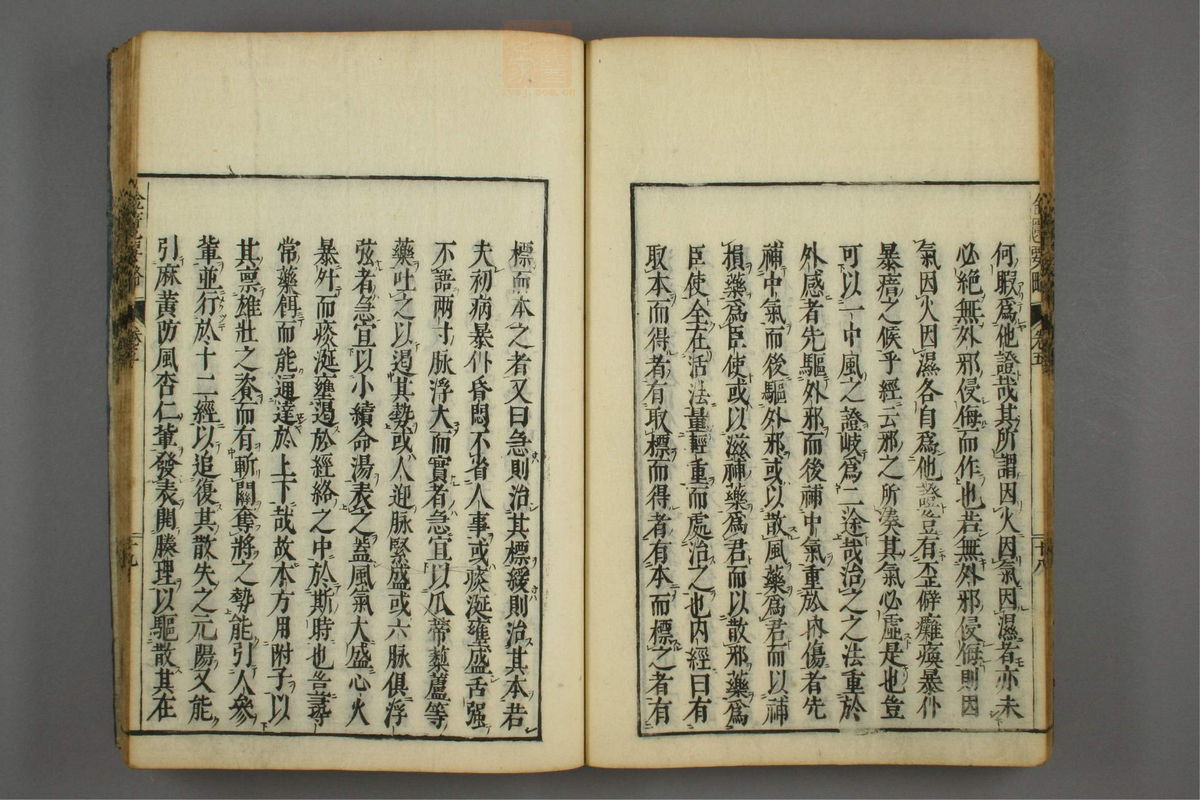 何暇爲他證哉其所謂因火因氣因濕者亦未
必絶無外邪侵侮而作也若無外邪侵侮則因
氣因火因濕各自爲他證豈有歪僻癱瘓暴仆
暴瘖之候乎經云邪之所湊其氣必虛是也豈
可以一中風之證岐爲二途哉治之之法重於
外感者先驅外邪而後補中氣重於內傷者先
補中氣而後驅外邪或以散風藥爲君而以補
損藥爲臣使或以滋補藥爲君而以散邪藥爲
臣使全在活法量輕重而處治之也內經曰有
取本而得者有取標而得者有本而標之者有
標而本之者又曰急則治其標緩則治其本若
夫初病暴仆昏悶不省人事或痰涎壅盛舌强
不語兩寸脉浮大而實者急宜以瓜蒂藜蘆等
藥吐之以遏其勢或人迎脉緊盛或六脉俱浮
弦者急宜以小續命湯表之蓋風氣大盛心火
暴升而痰涎壅遏於經絡之中於斯時也豈尋
常藥餌而能通達於上下哉故本方用附子以
其禀雄壯之資而有斬關奪將之勢能引人參
軰並行於十二經以追復其散失之元陽又能
引麻黃防風杏仁軰發表開腠理以驅散其在
卷五
十八